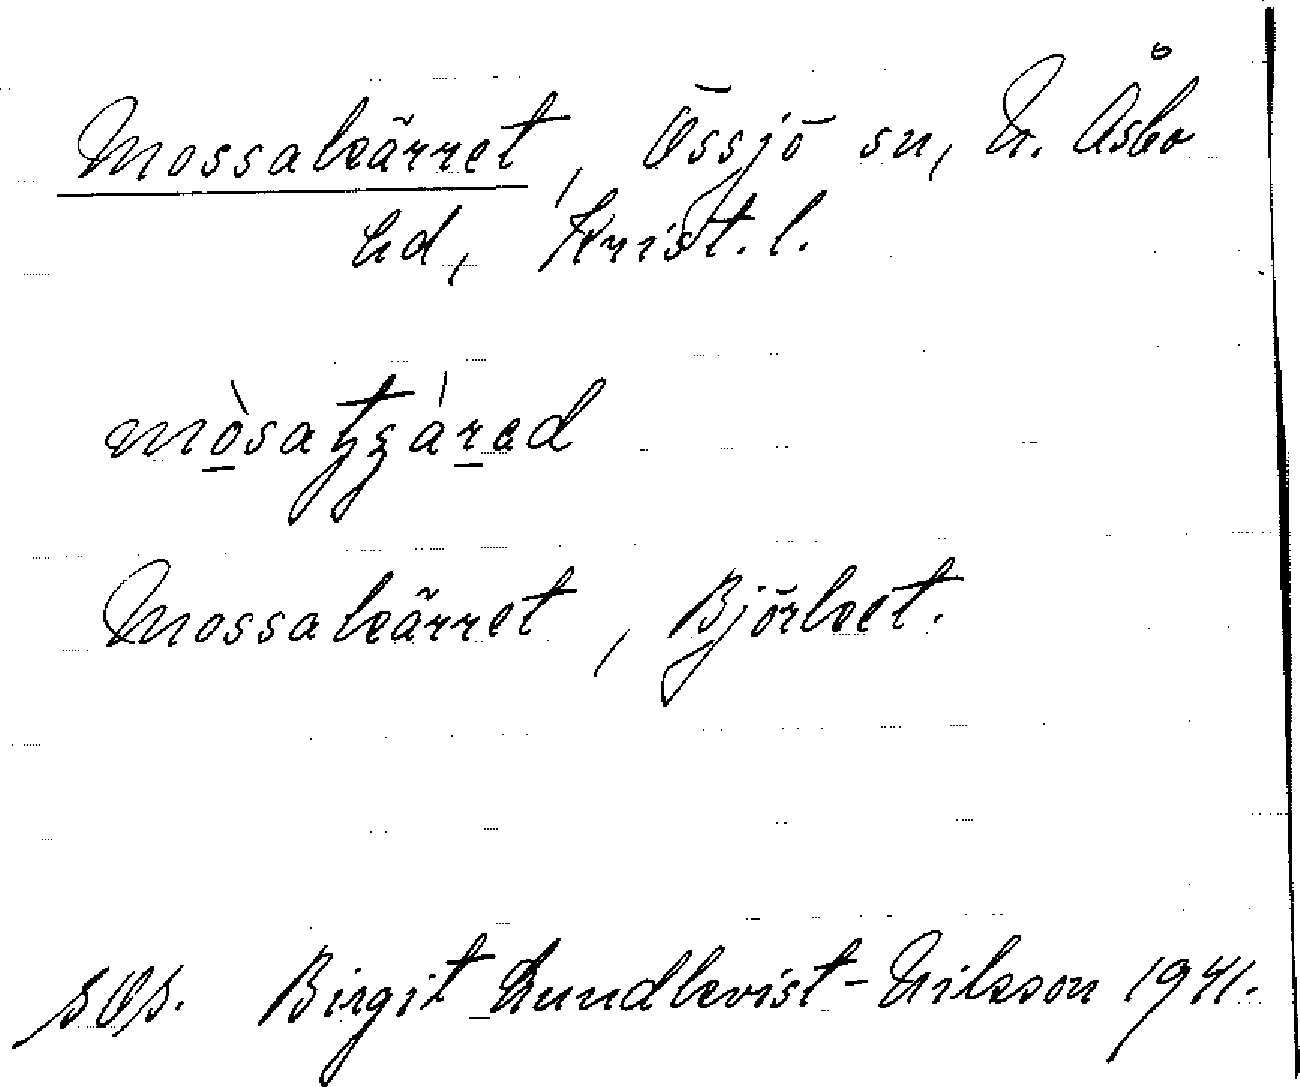 Mossakärret, Össjö sn, N. Åsbo
hd, Krist. l.
mòsatʒárad
Mossakärret, Björket.
Birgit Lundkvist-Nilsson 1941.